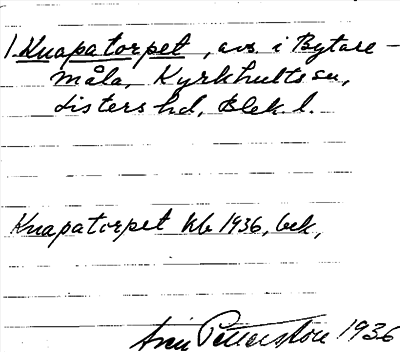 1. Knapatorpet, avs. i Bytare-
måla, Kyrkhults sn,
Listers hd, Blek. l.
Knapatorpet kb 1936, bek,
Petterson 1936